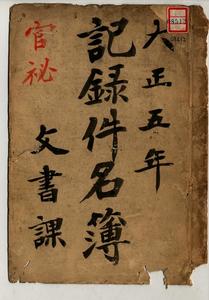 大正五年
記録件名簿
文書課
官秘